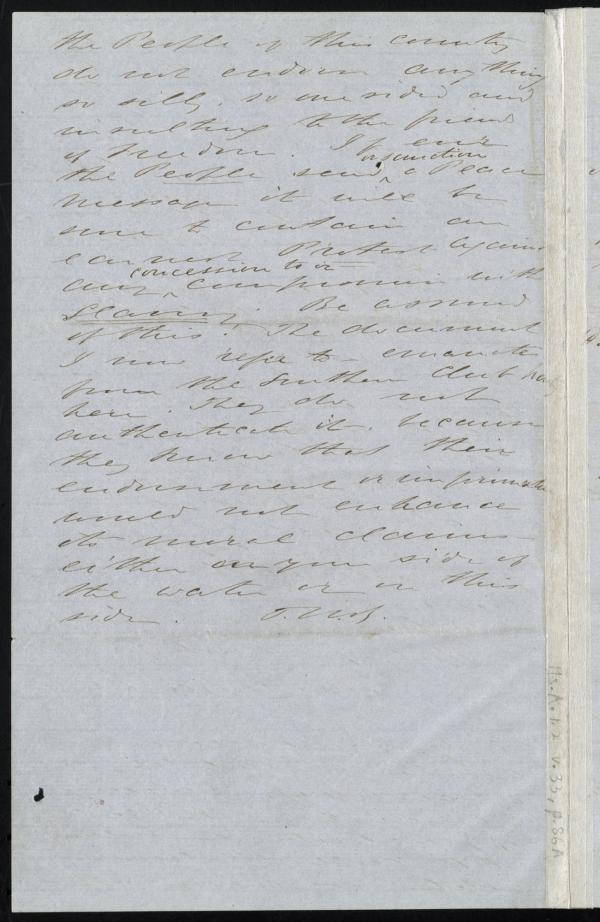 the People of this country
do not endorse anything
so silly, so one sided and
insulting to the friend
of freedom. If ever
or sanction
the People send a Peace
message it will be
sure to contain an
earnest Protest against
concession to or
any compromise with
Slavery. Be assured
of this. The document
I now refer to emanates
from the Southern Club
here. They do not
authenticate it, because
they know that their
endorsement or imprimatur
would not enhance
its moral claims
either on your side of
the water or on this
side.
Ms. A. 1. 2 v. 33, p. 86A